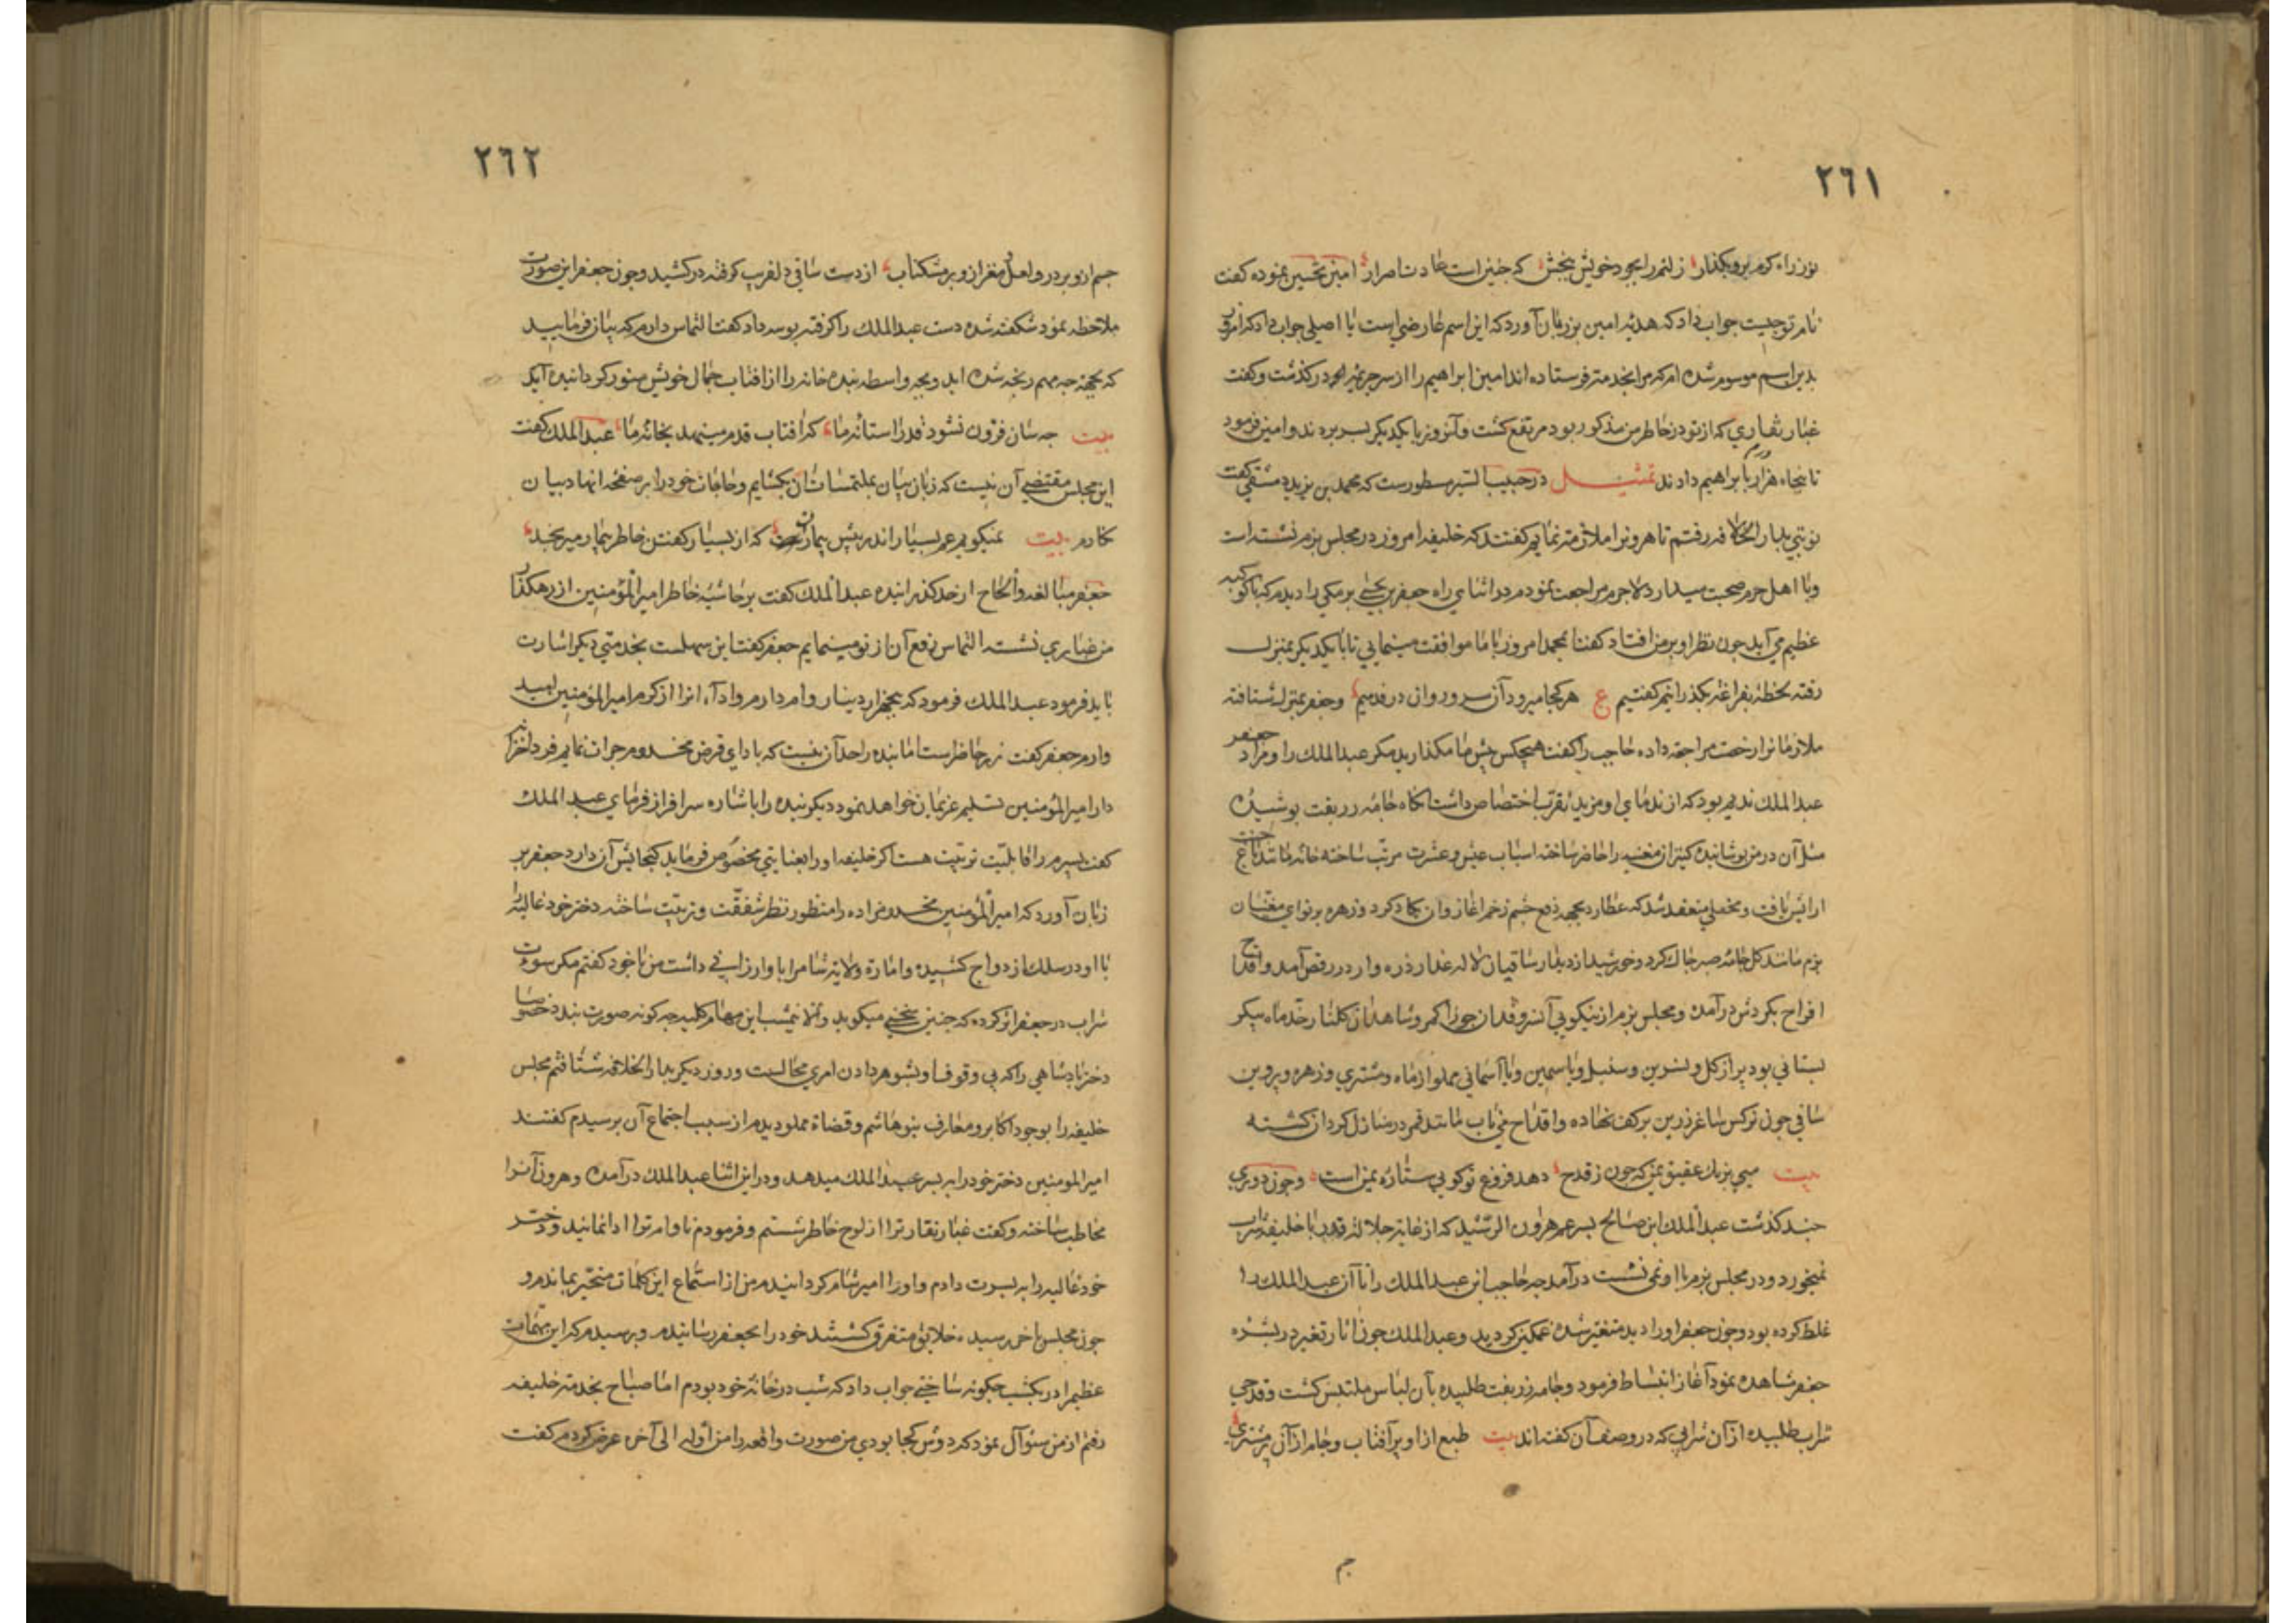 ٢٦١
توز راه کرم برو بگذار زلتم را بجود خویش ببخش که چنین است عادت ناصرار امین تحسین نموده کفت
نام تو چیست جواب داد که هدیه امین بر زبان آورد که این اسم عارضی است یا اصلی جواب داد که امروز
بدین اسم موسوم شده ام که مرا بخدمتت فرستاده اند امین ابراهیم را از سر جریمه در کذشت و کفت
غبار نقاری که از تو در خاطر من مذکور بود مرتفع کشت و آنروز با یکدیکر بسر بردند و امین فرمود
تا پنجاه هزار درم بابراهیم دادند تمثیل در حبیب السیر مسطورست که محمد بن یزید دمشقی کفت
نوبتی بدار الخلافه رفتم تا هرونرا ملازمت نمایم کفتند که خلیفه امروز در مجلس بزم نشسته است
و با اهل حرم صحبت میدارد لاجرم مراجعت نمودم در اثنای راه جعفر بن یحیی برمکی را دیدم که با کوکبه
عظیم می آید چون نظر او بر من افتاد کفت ای محمد امروز با ما موافقت مینمایی تا با یکدیکر بمنزل
رفته لحظهٔ بفراغت بکذرانیم کفتیم ع هر کجا میرود آن سرو روان در قدمیم و جعفر بمنزل شتافته
ملازمانرا رخصت مراجعت داده حاجب را کفت هیچکس پیش ما مکذارید مکر عبد الملک را و مراد جعفر
عبد الملک ندیم بود که از ندمای او بمزید تقرب اختصاص داشت انکاه جامه زربفت پوشیده
مثل آن در من پوشانید کنیزان مغنیه را حاضر ساخته اسباب عیش و عشرت مرتب ساخته خانه مانند باغ جنت
ارایش یافت و محفلی منعقد شد که عطارد بجهة دفع چشم زخم اغاز وان یکاد کرد و زهره بر نوای مغنیان
بزم مانند کل جامه صبر چاک کرد و خورشید از دیدار ساقیان لاله عذار ذره وار در رقص آمد و اقداح
افراح بکردش در آمده و مجلس بزم از نیکویی آن سروقدان جوزا کمر و شاهدان کلنار رخ ماه پیکر
بستانی بود پر از کل و نسرین و سنبل و یاسمین و یا آسمانی مملو از ماه و مشتری و زهره و پروین
ساقی چون نرکس ساغر زرین بر کف نهاده و اقداح می ناب مانند قمر در منازل کردان کشته
بیت میی برنک عقیق یمن که چون ز قدح دهد فروغ تو کویی ستاره یمن است و چون دوری
چند کذشت عبد الملک ابن صالح پسر عم هرون الرشید که از غایة جلالة قدر با خلیفه شراب
نمیخورد و در مجلس بزم با او نمی نشست در آمد چه حاجب این عبد الملک را با آن عبد الملک را
غلط کرده بود و چون جعفر او را دید متغیر شده غمکین کردید و عبد الملک چون اثار تغیر در بشره
جعفر مشاهده نمود آغاز انبساط فرمود و جامه زربفت طلبیده بآن لباس ملتبس کشت و قدحی
شراب طلبیده از آن شرابی که در وصف آن کفته اند بیت طبع از او پر آفتاب و جام از آن پر مشتری
جم
٢٦٢
جسم ازو پر در و لعل و مغز ازو پر مشکناب از دست ساقی دلفریب کرفته در کشید و چون جعفر این صورت
ملاحظه نمود شکفته شده دست عبد الملک را کرفته بوسه داد و کفت التماس دارم که بیان فرمایید
که بجهة چه مهم رنجه شده اید و بچه واسطه بنده خانه را از افتاب جمال خویش منور کردانیده آید
بیت چه سان فزون نشود قدر استانه ما که افتاب قدم مینهد بخانه ما عبد الملک کفت
این مجلس مقتضی آن نیست که زبان ببیان ملتمسات آن بکشایم و حاجات خود را بر صفحه انهاد بیان
نکارم بیت نمیکویم غم بسیار اندر پیش بیماران که از بسیار کفتن خاطر بیمار میرنجد
جعفر مبالغه و الحاح از حد کذرانیده عبد الملک کفت بر حاشیهٔ خاطر امیر المؤمنین از رهکذار
من غباری نشسته التماس رفع آن از تو مینمایم جعفر کفت این سهلست بخدمتی دیکر اشارت
باید فرمود عبد الملک فرمود که پنجهزار دینار وام دارم و ادآء انرا از کرم امیر المؤمنین امید
وارم جعفر کفت زر حاضر است اما بنده را حد آن نیست که بادای قرض مخدوم جرات نمایم فردا خزانه
دار امیر المؤمنین تسلیم غریمان خواهد نمود دیکر بنده را باشاره سرافراز فرمای عبد الملک
کفت پسرم را قابلیت تربیت هست اکر خلیفه او را بعنایتی مخصوص فرماید کنجایش آن دارد جعفر بر
زبان آورد که امیر المؤمنین مخدوم زاده را منظور نظر شفقت و تربیت ساخته دختر خود غالیه را
با او در سلک ازدواج کشیده و امارة ولایة شام را باو ارزانی داشت من با خود کفتم مکر سورت
شراب در جعفر اثر کرده که چنین سخنی میکوید و الا نیمشب این مهام کلیه چه کونه صورت بندد خصوصا
دختر پادشاهی را که بی وقوف او بشوهر دادن امری محالست و روز دیکر بدار الخلافه شتافتم مجلس
خلیفه را بوجود اکابر و معارف بنو هاشم و قضاة مملو دیدم از سبب اجتماع آن پرسیدم کفتند
امیر المومنین دختر خود را به پسر عبد الملک میدهد و در این اثنا عبد الملک در آمده و هرون آنرا
مخاطب ساخته و کفت غبار نقار ترا از لوح خاطر شستم و فرمودم تا وام ترا ادا نمایند و دختر
خود غالیه را به پسرت دادم و او را امیر شام کردانیدم من از استماع این کلمات متحیر بماندم و
چون مجلس باخر رسید و خلایق متفرق کشتند خود را بجعفر رسانیدم و پرسیدم که این مهمات
عظیم را در یکشب چکونه ساختی جواب داد که شب در خانهٔ خود بودم اما صباح بخدمة خلیفه
رفتم از من سئوآل نمود که دوش کجا بودی من صورت واقعه را من اوله الی آخره عرض کردم کفت